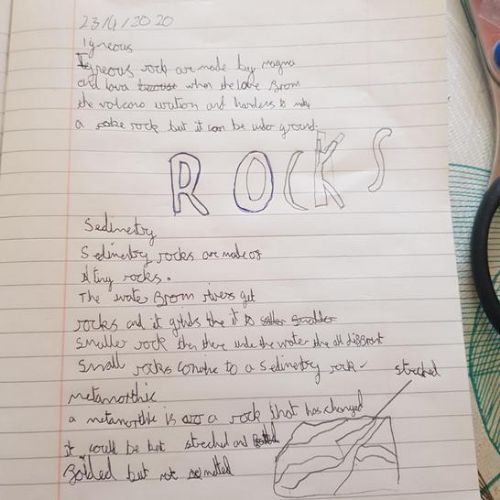 23/4/2020
Igneous
Igneous rock are made by magma
and lava when the lava Brom
the volcano and hardens to make
a rock but it can be under ground.
ROCKS
Sedimetry
Sedimetry rocks are made of
tiny rocks.
The water Brom rivers get
rocks and it grinds the it to
smaller rock then there unde the water the all different
small rocks to a Sedimetry rock
streched
metamorthic
a metamorthic is a rock that has changed
it could be but streched and
Bolded but not melted